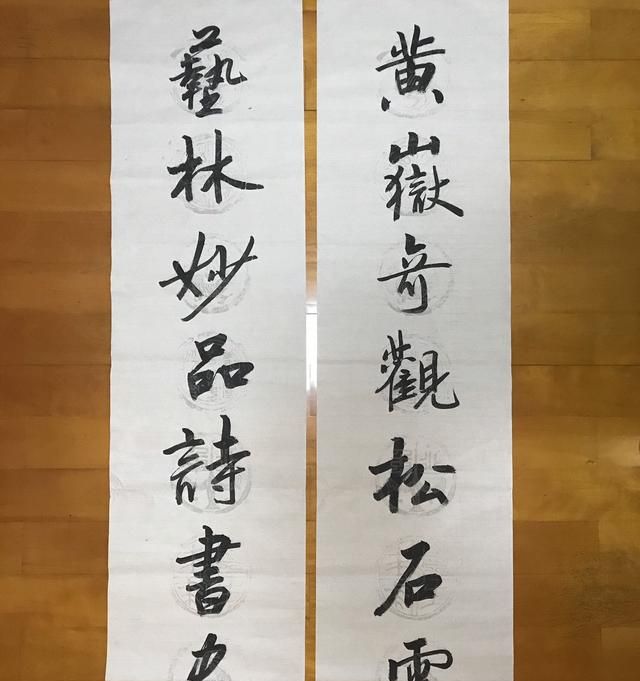 黄嶽奇觀松石雲
藝林妙品詩書